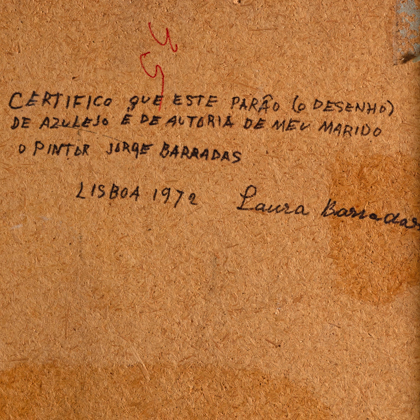 CERTIFICO QUE ESTE PARÃO (O DESENHO)
DE AZULEJO E DE AUTORIA DE MEU MARIDO
O PINTOR JORGE BARRADAS
LISBOA 1972 Laura Barradas